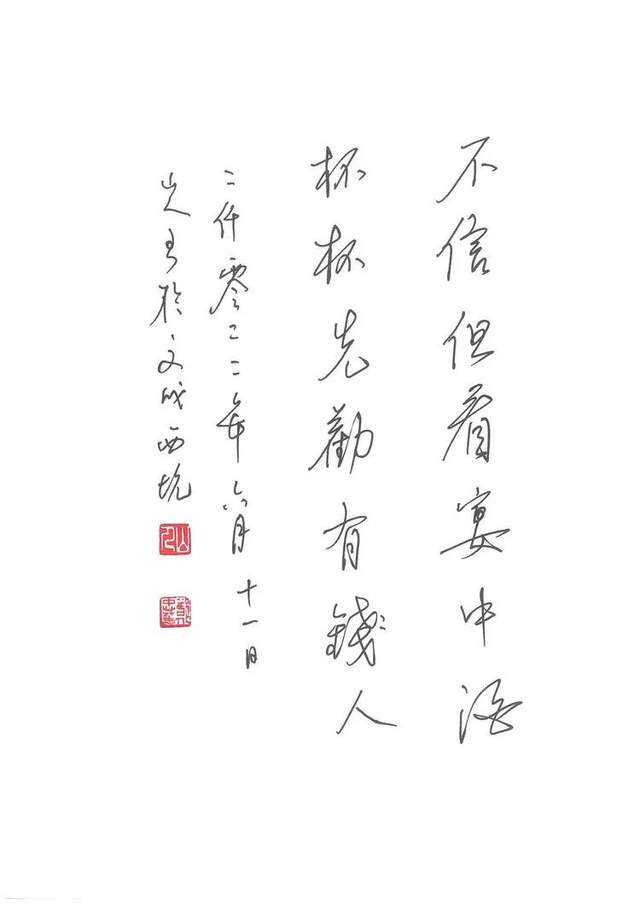 不信但看宴中酒
杯杯先勸有錢人
二仟零二二年六月十一日
山人書於文成西坑
山人